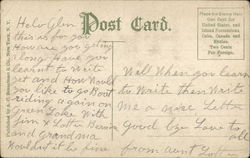 Post Card.
Place Postage Here
One Cent for
United States, and
Island Possessions,
Cuba, Canada and
Mexico.
Two Cents
For Foreign.
Helo Glen
this is for you
How are you geting
along have you
learnt to write
yet and How Would
you like to go Boat
riding again on
Green Lake With
Jim & Lottie Bernice
and Grandma
Would it be fine
Will When you learn
to Write then Write
Me a nice Letter
Good bye Love to
all
from aunt Lottie